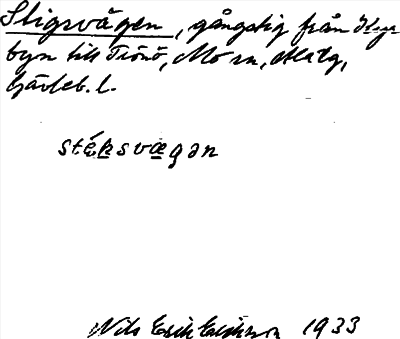 Stigsvägen, gångstig från Kyr
byn till Trönö, Mo sn, Hälg,
Gävleb. l.
stéksvægən
Nils Erik Eriksson 1933